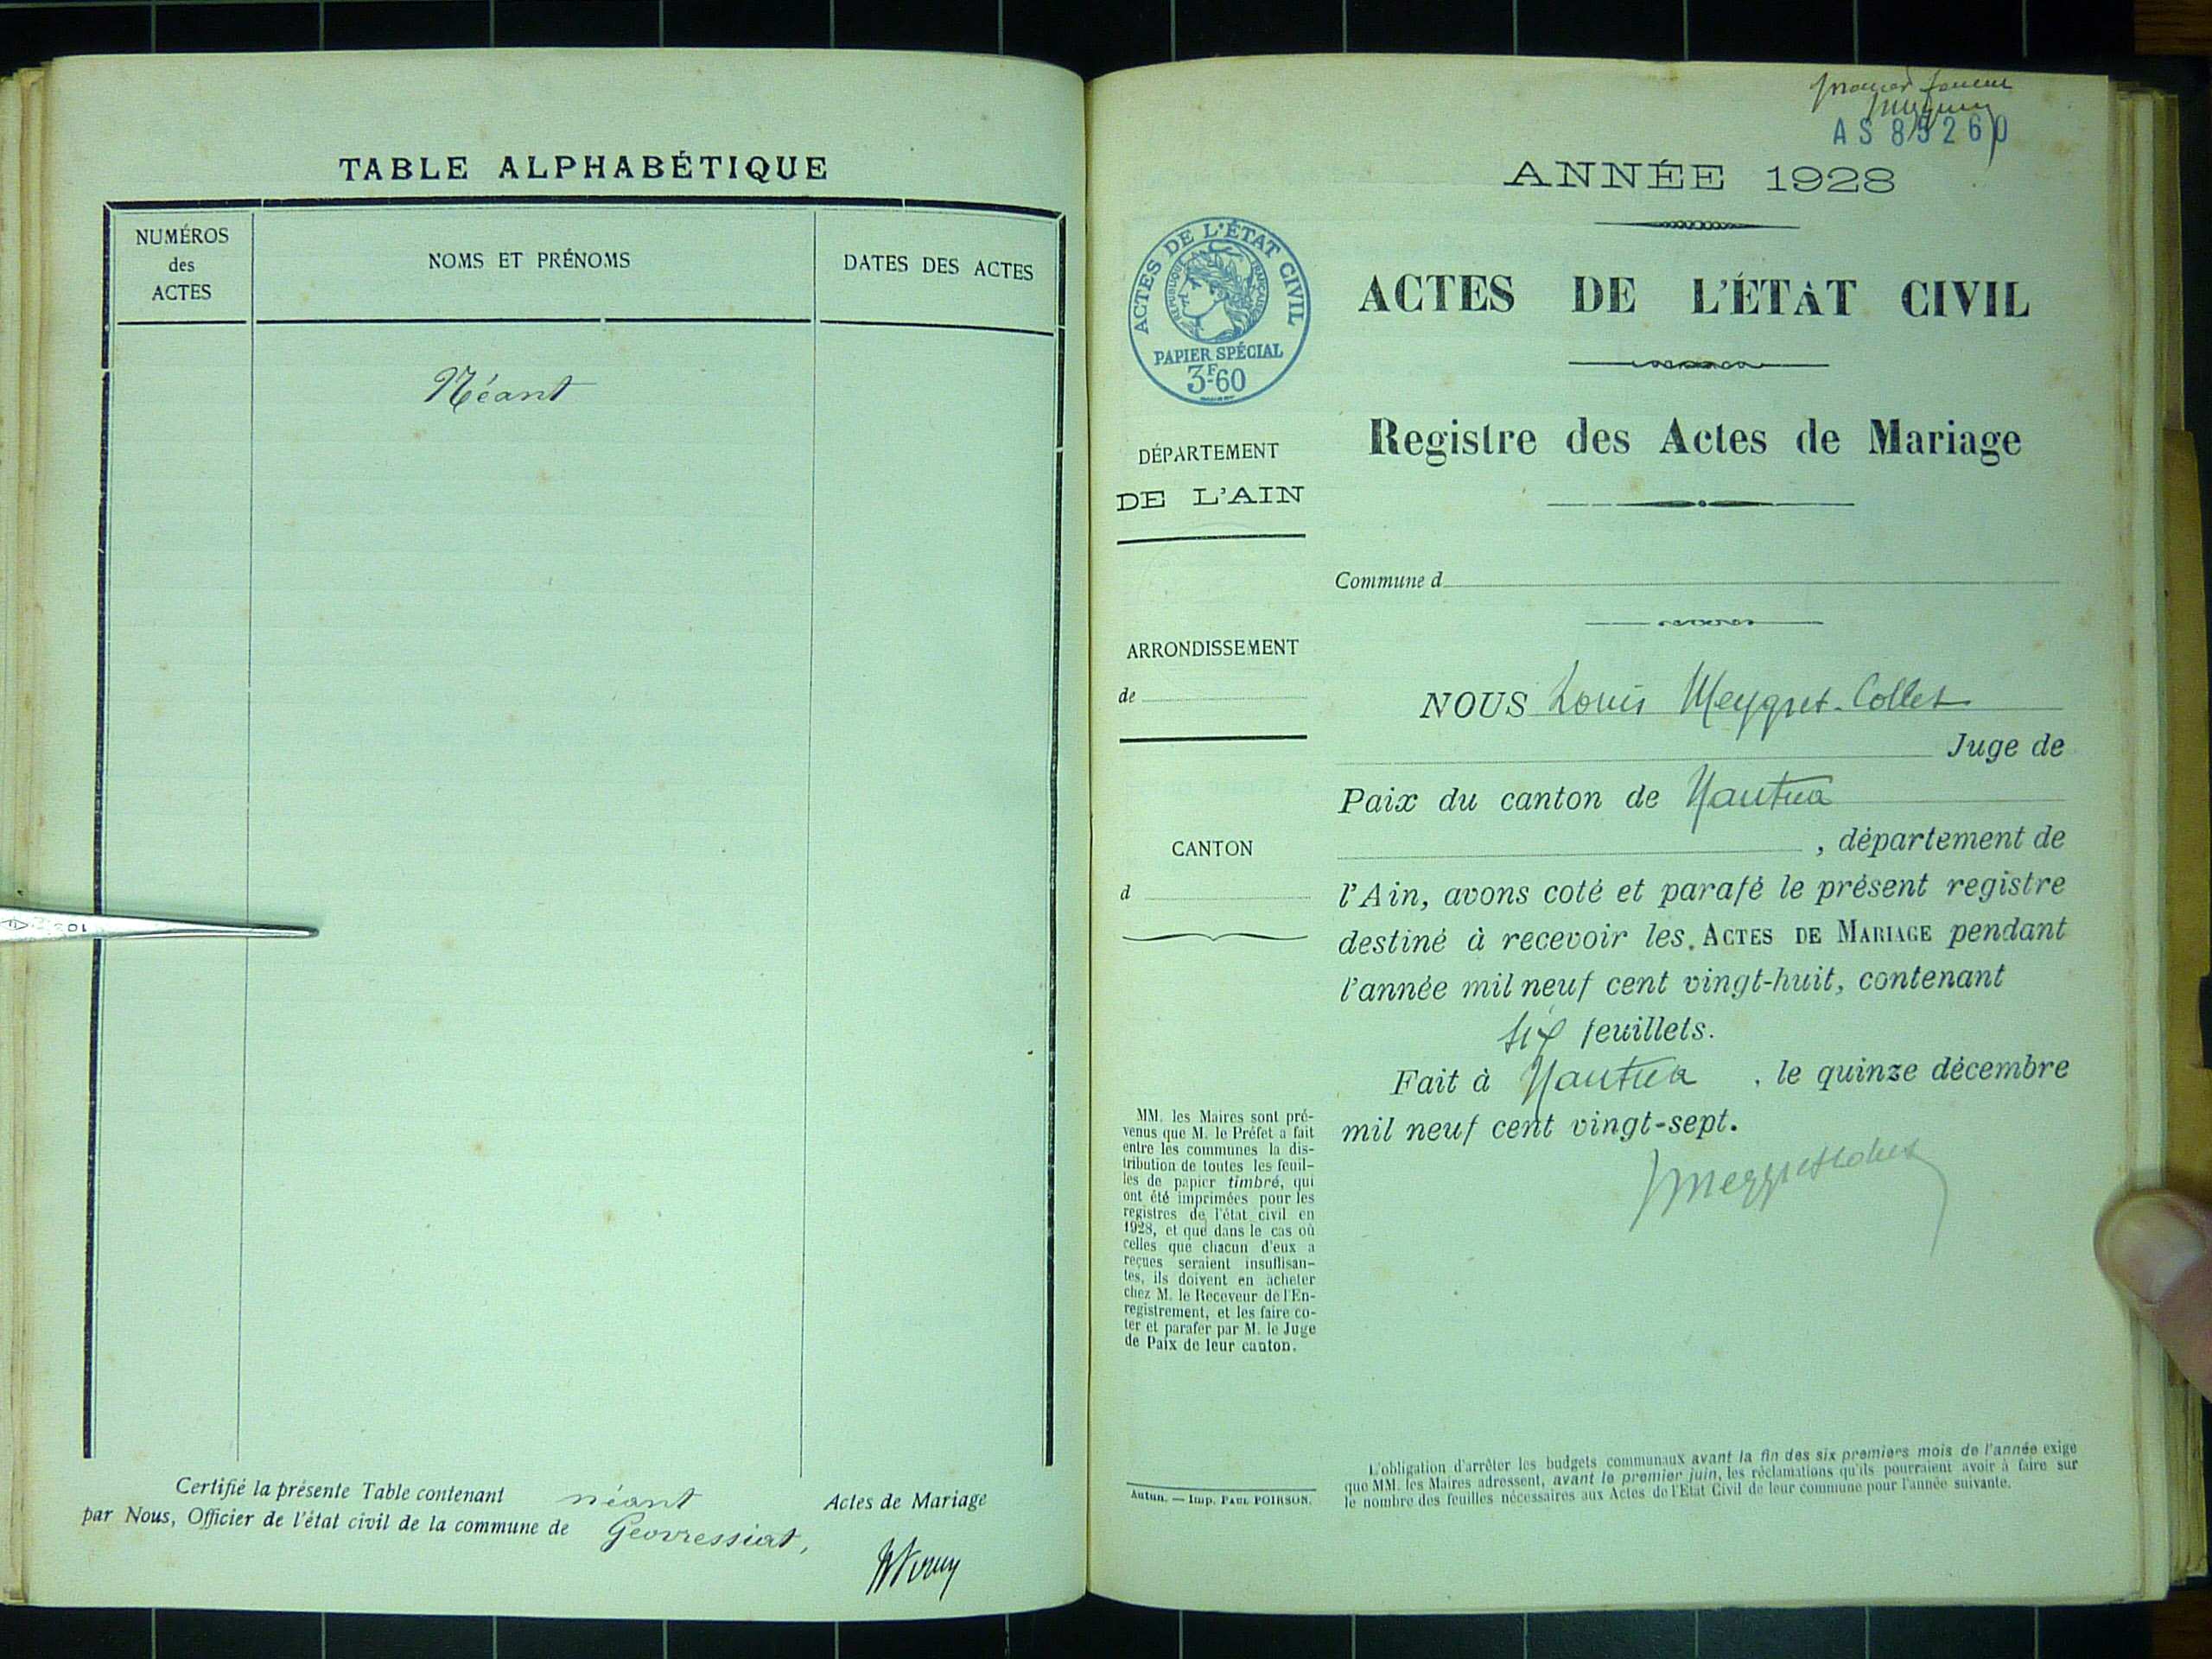 TABLE ALPHABÉTIQUE
NUMÉROS
des
ACTES
NOMS ET PRÉNOMS
DATES DES ACTES
Néant
Certifié la présente Table contenant néant Actes de Mariage
par Nous, Officier de l'état civil de la commune de Geovressiat,
premier
AS 85260
ANNÉE 1928
ACTES DE L'ÉTAT CIVIL
RÉPUBLIQUE FRANÇAISE
PAPIER SPÉCIAL
3F60
ACTES DE L'ÉTAT CIVIL
Registre des Actes de Mariage
DÉPARTEMENT
DE L'AIN
ARRONDISSEMENT
de
CANTON
d
MM. les Maires sont pré-
venus que M. le Préfet a fait
entre les communes la dis-
tribution de toutes les feuil-
les de papier timbré, qui
ont été imprimées pour les
registres de l'état civil en
1928, et que dans le cas où
celles que chacun d'eux a
reçues seraient insuffisan-
tes, ils doivent en acheter
chez M. le Receveur de l'En-
registrement, et les faire co-
ter et parafer par M. le Juge
de Paix de leur canton.
Autun. — Imp. PAUL POIRSON.
Commune d
NOUS Louis Meygret-Collet
Juge de
Paix du canton de Nantua
, département de
l'Ain, avons coté et parafé le présent registre
destiné à recevoir les ACTES DE MARIAGE pendant
l'année mil neuf cent vingt-huit, contenant
six feuillets.
Fait à Nantua , le quinze décembre
mil neuf cent vingt-sept.
L'obligation d'arrêter les budgets communaux avant la fin des six premiers mois de l'année exige
que MM. les Maires adressent, avant le premier juin, les réclamations qu'ils pourraient avoir à faire sur
le nombre des feuilles nécessaires aux Actes de l'Etat Civil de leur commune pour l'année suivante.